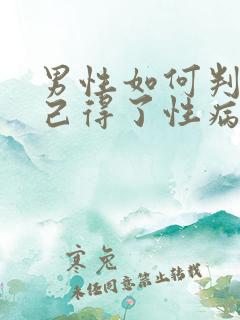 男性如何判
己得了性病
寒兔
未经同意禁止转载